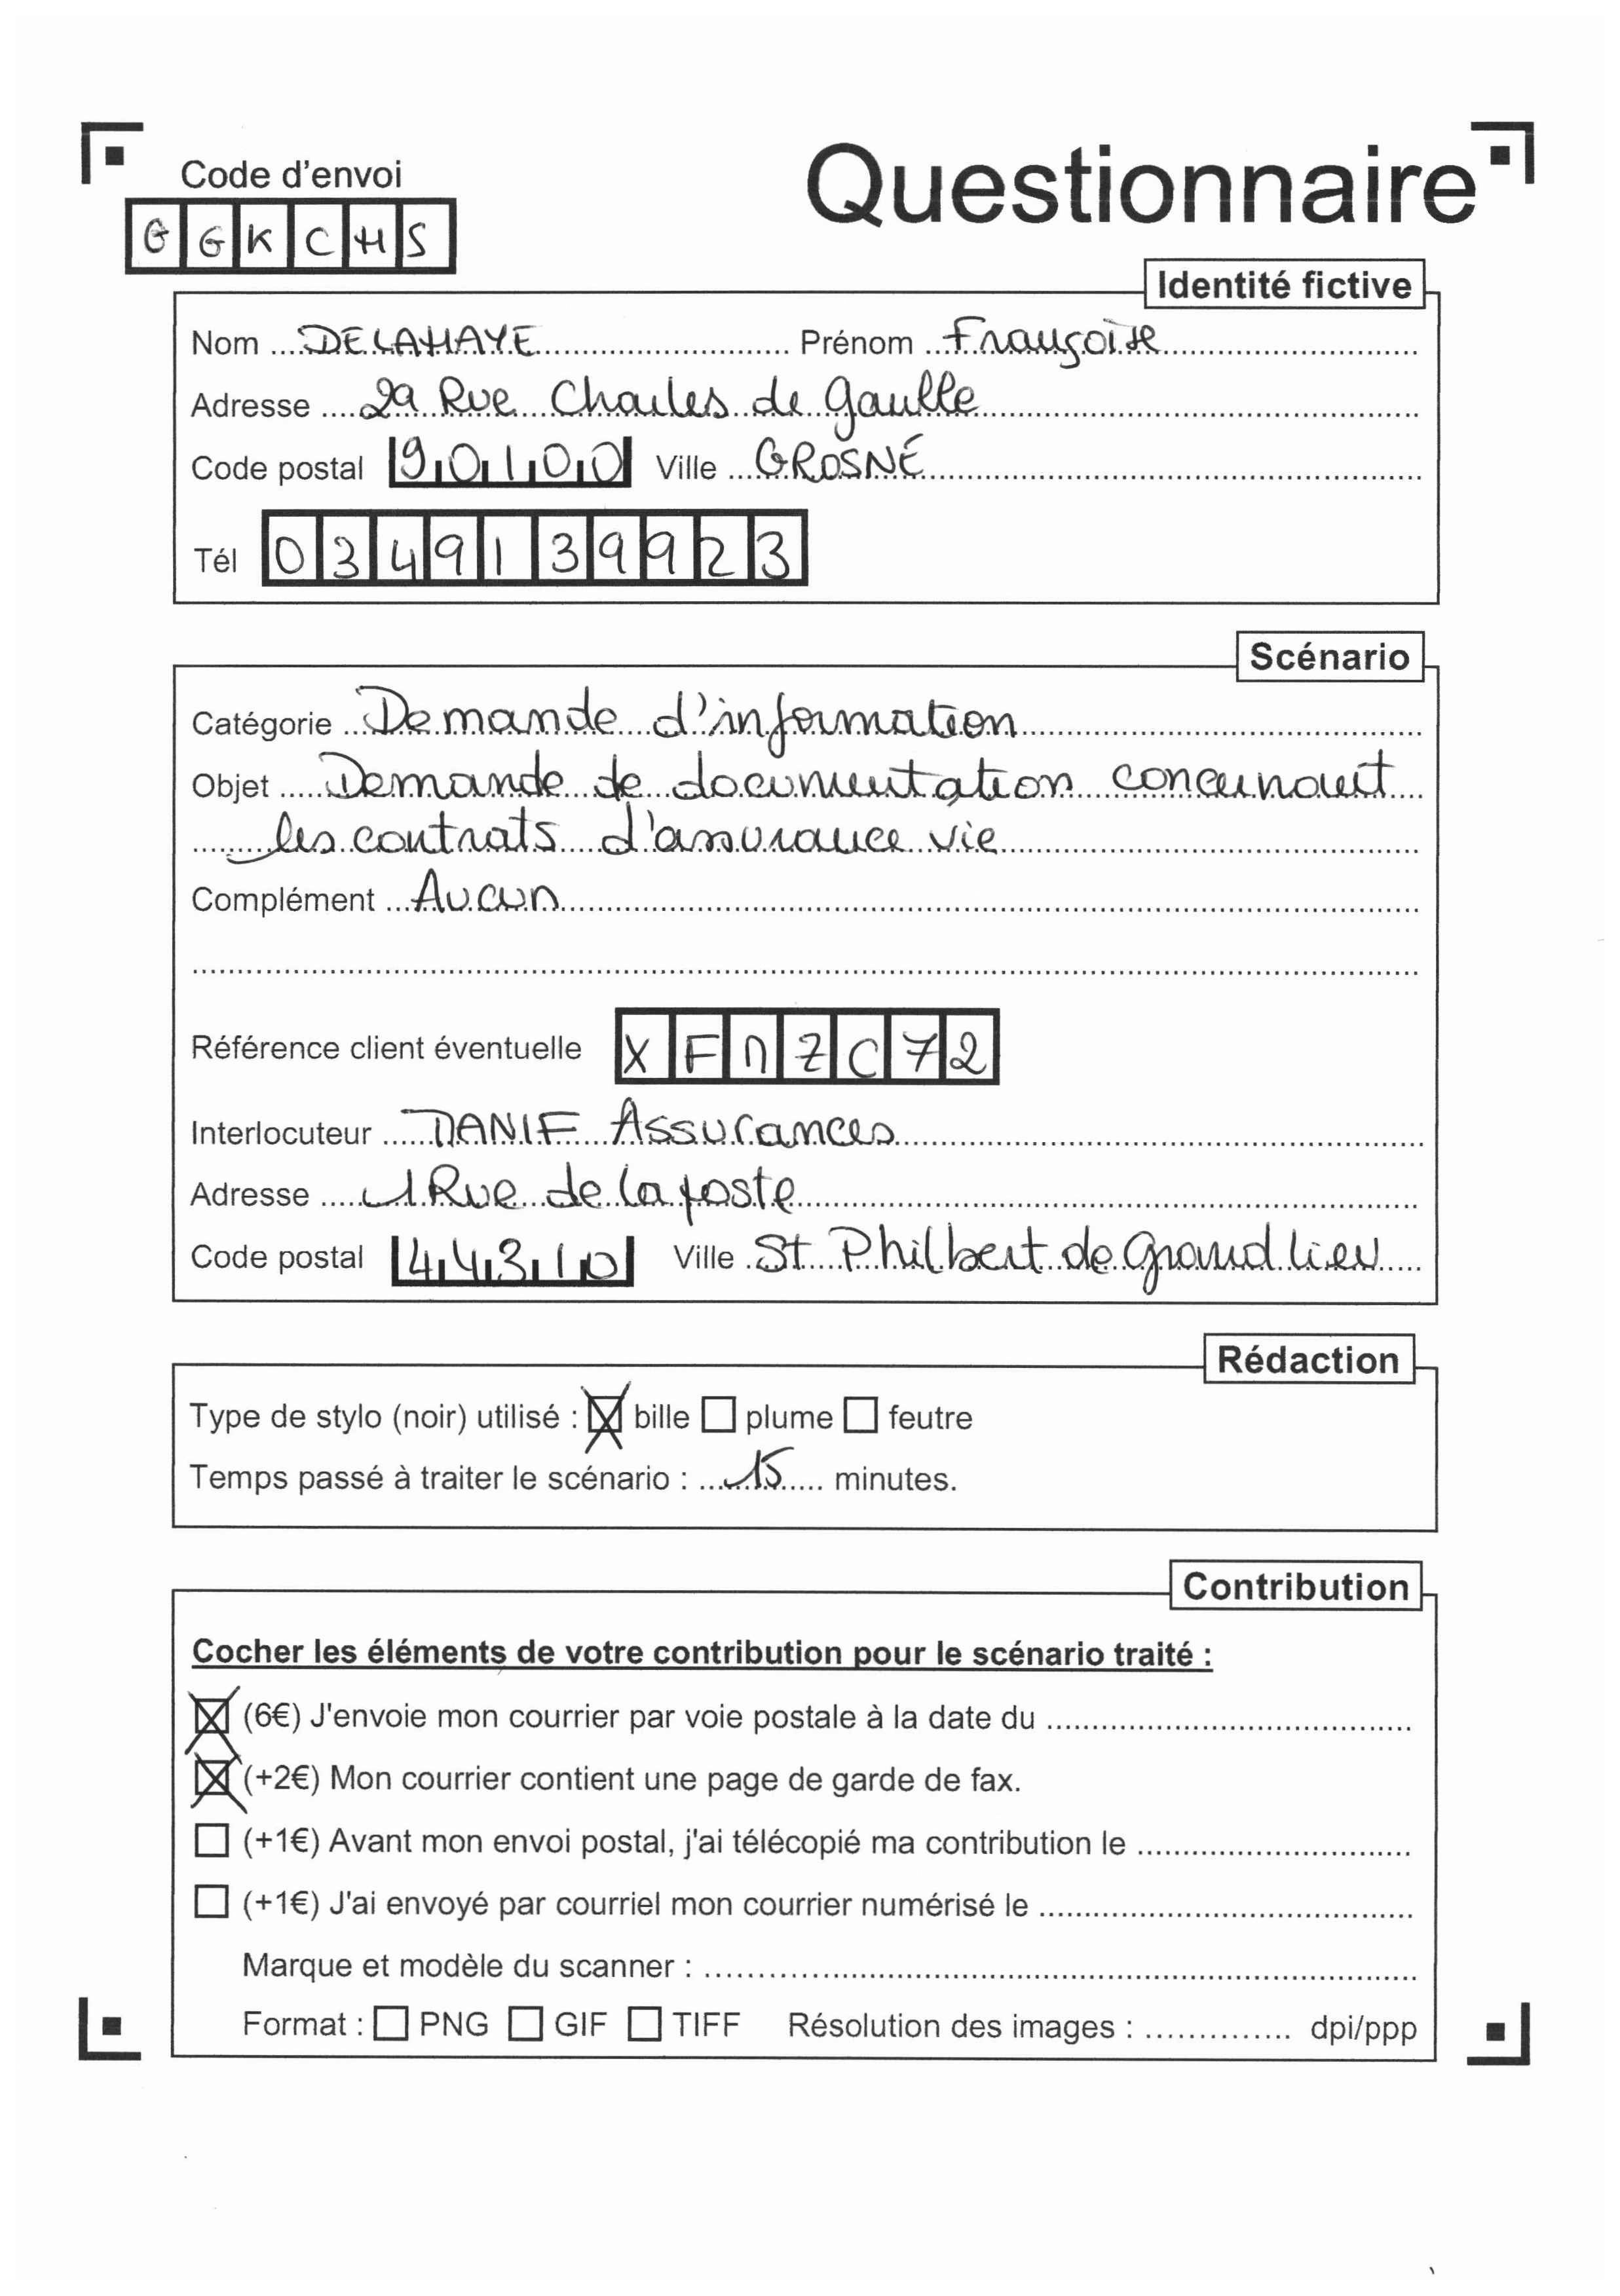 Code d'envoi
Questionnaire
GGKCHS
Identité fictive
Nom DELAHAYE Prénom Françoise
Adresse 29 Rue Charles de Gaulle
Code postal 90100 Ville GROSNE
Tél 0349139923
Scénario
Catégorie Demande d'information
Objet Demande de documentation concernant
les contrats d'assurance vie
Complément Aucun
Référence client éventuelle XFNZC72
Interlocuteur Assurances
Adresse 1 Rue de la poste
Code postal 44310 Ville St Philbert de Grand lieu
Rédaction
Type de stylo (noir) utilisé : bille plume feutre
Temps passé à traiter le scénario : 15 minutes.
Contribution
Cocher les éléments de votre contribution pour le scénario traité :
(6€) J'envoie mon courrier par voie postale à la date du
(+2€) Mon courrier contient une page de garde de fax.
(+1€) Avant mon envoi postal, j'ai télécopié ma contribution le
(+1€) J'ai envoyé par courriel mon courrier numérisé le
Marque et modèle du scanner :
Format : PNG GIF TIFF Résolution des images : dpi/ppp